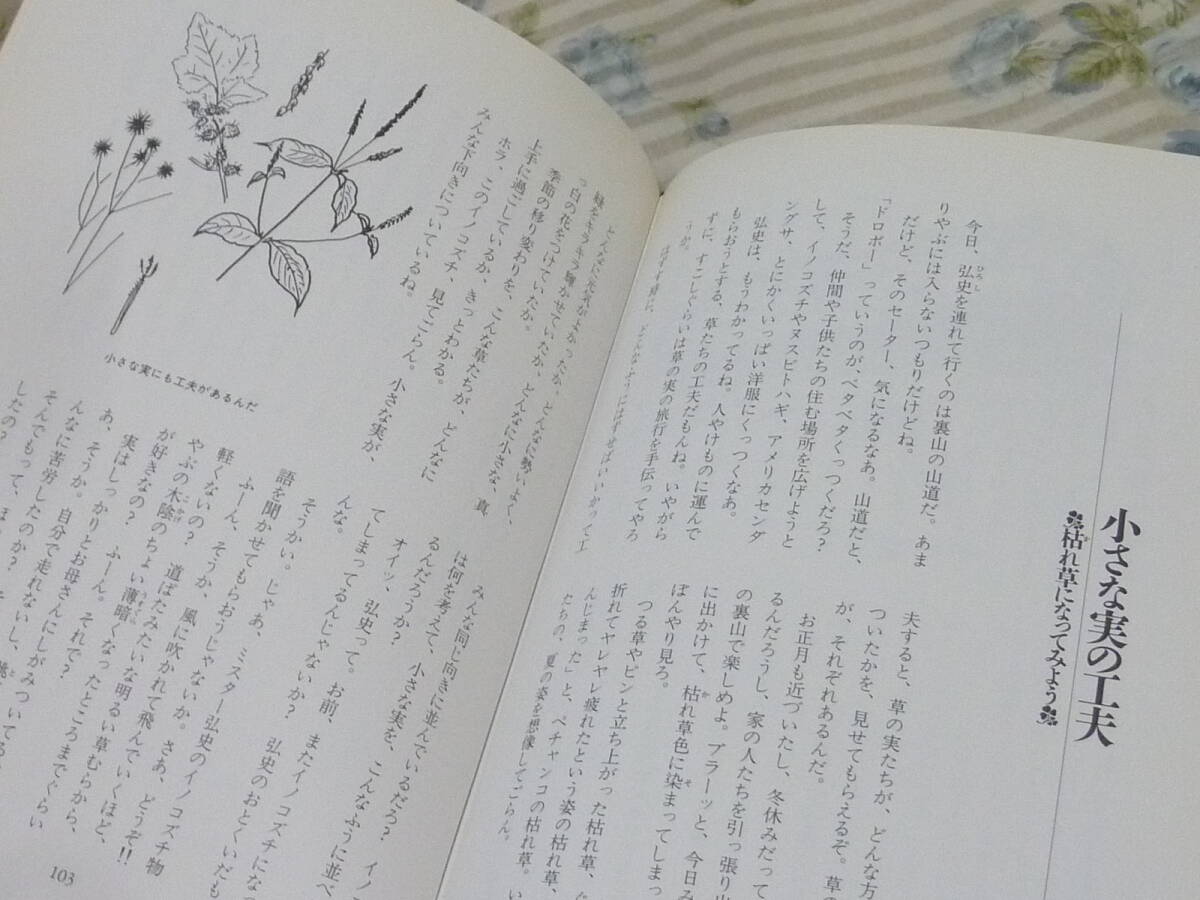 小さな実の工夫
枯れ草になってみよう
今日、弘史を連れて行くのは裏山の山道だ。あま
りやぶには入らないつもりだけどね。
だけど、そのセーター、気になるなあ。山道だと、
「ドロボー」っていうのが、ベタベタくっつくだろ？
そうだ、仲間や子供たちの住む場所を広げようと
して、イノコズチやヌスビトハギ、アメリカセンダ
ングサ、とにかくいっぱい洋服にくっつくなあ。
弘史は、もうわかってるね。人やけものに運んで
もらおうとする、草たちの工夫だもんね。いやがら
ずに、すこしぐらいは草の実の旅行を手伝ってやろ
うか。
はずす時に、どんなふうにはずせばいいかって工
夫すると、草の実たちが、どんな方
ついたかを、見せてもらえるぞ。草の
が、それぞれあるんだ。
お正月も近づいたし、冬休みだって
るんだろうし、家の人たちを引っ張り出
の裏山で楽しめよ。ブラーッと、今日み
に出かけて、枯れ草色に染まってしまっ
ぼんやり見ろ。
つる草やピンと立ち上がった枯れ草、
折れてヤレヤレ疲れたという姿の枯れ草、
んじまった」と、ペチャンコの枯れ草。い
たちの、夏の姿を想像してごらん。
どんなに元気がよかったか。どんなに勢いよく、
緑をキラキラ輝かせていたか、どんなに小さな、真
っ白の花をつけていたか。
季節の移り変わりを、こんな草たちが、どんなに
上手に過ごしているか、きっとわかる。
ホラ、このイノコズチ、見てごらん。小さな実が、
みんな下向きについているね。
小さな実にも工夫があるんだ
みんな同じ向きに並んでいるだろ？イノ
は何を考えて、小さな実を、こんなふうに並べ
るんだろうか？
オイッ、弘史って。お前、またイノコズチにな
てしまってるんじゃないか？弘史のおとくいだも
んな。
そうかい。じゃあ、ミスター弘史のイノコズチ物
語を聞かせてもらおうじゃないか。さあ、どうぞ!!
ふーん、そうか、風に吹かれて飛んでいくほど、
軽くないの？道ばたみたいな明るい草むらから、
やぶの木陰のちょい薄暗くなったところまでぐらい
が好きなの？ふーん。それで？
実はしっかりとお母さんにしがみついてる
あ、そうか。自分で走れないし、
んなに苦労したのか？
そんでもって、
したの？
103